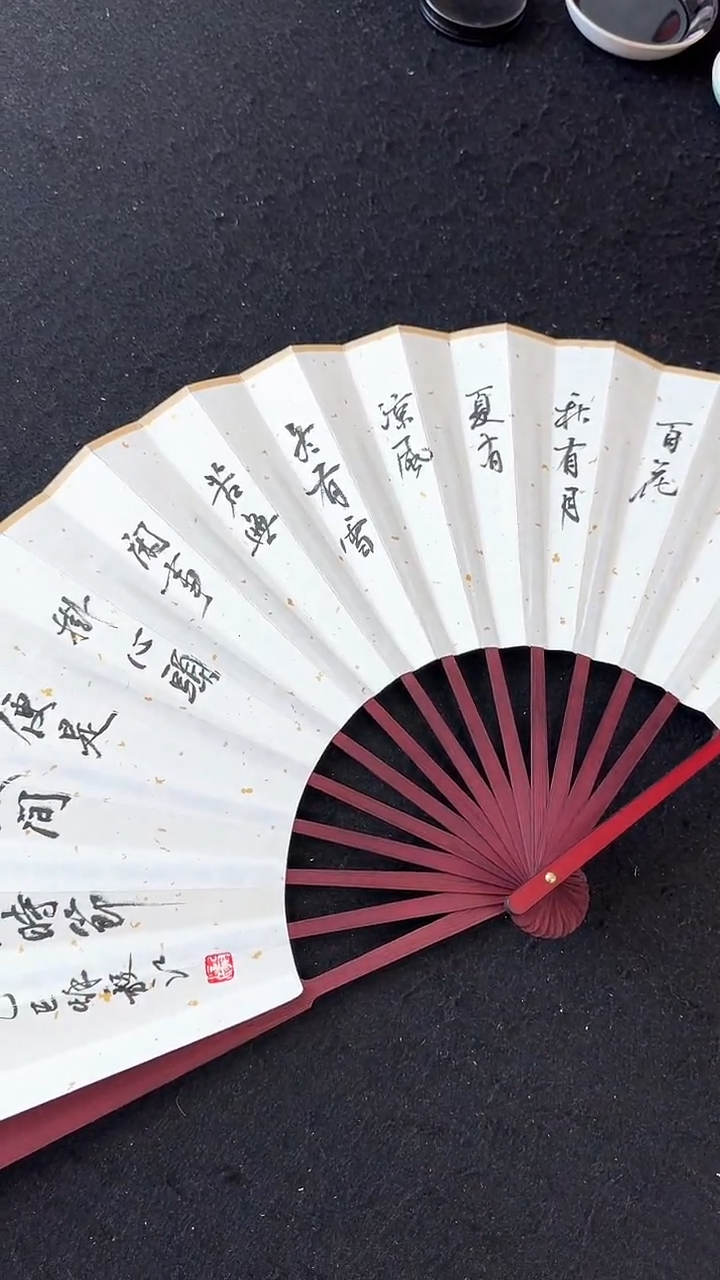 百花
秋有月
夏有
涼風
冬有雪
若無
閑事
掛心頭
便是
間
時節